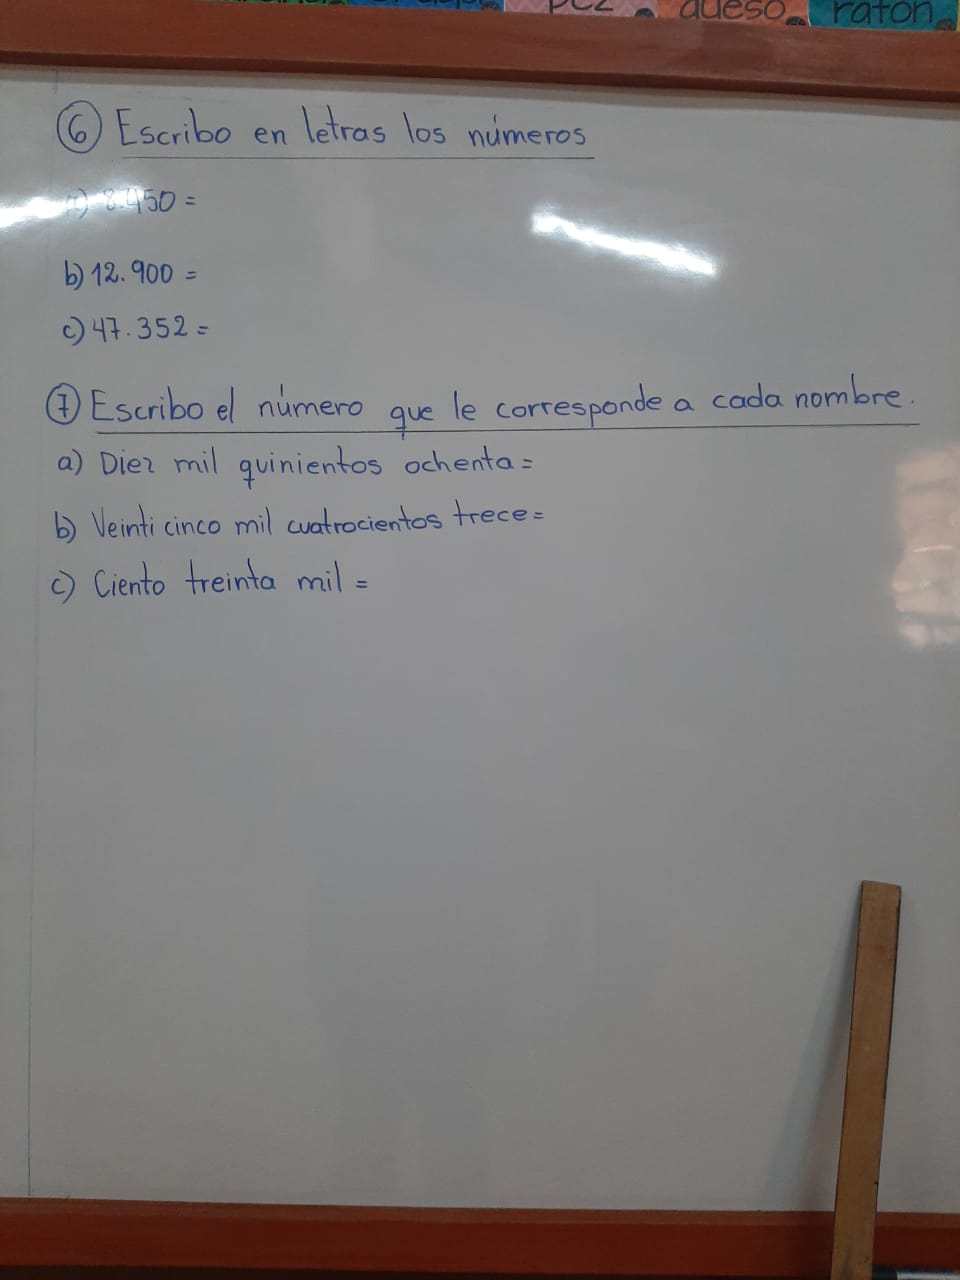 pez queso ratón
6 Escribo en letras los números
a) 8.450 =
b) 12.900 =
c) 47.352 =
7 Escribo el número que le corresponde a cada nombre.
a) Diez mil quinientos ochenta =
b) Veinti cinco mil cuatrocientos trece =
c) Ciento treinta mil =